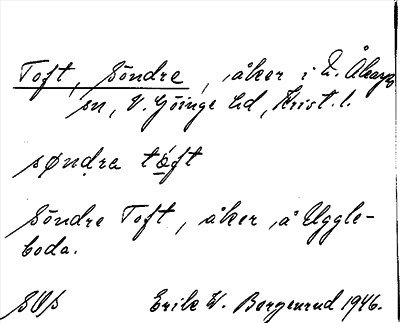 Toft, Söndre, åker i N. Åkarps
sn, V. Göinge hd, Krist. l.
søndra tóft
Söndre Toft, åker å Uggle-
boda.
SOS Erik W. Borgenrud 1946.